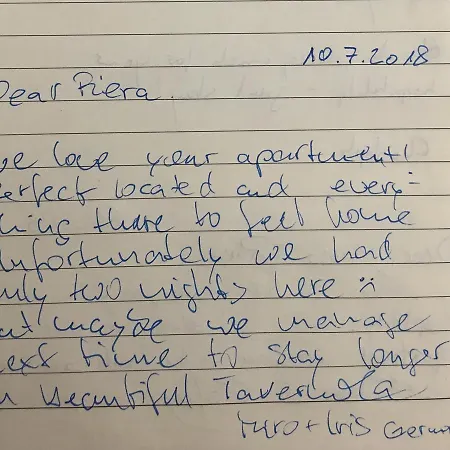 10.7.2018
Dear Piera.
we love your apartment!
perfect located and every-
thing there to feel home
Unfortunately we had
only two nights here :(
but maybe we manage
next time to stay longer
in beautiful Tavernola
+ Iris